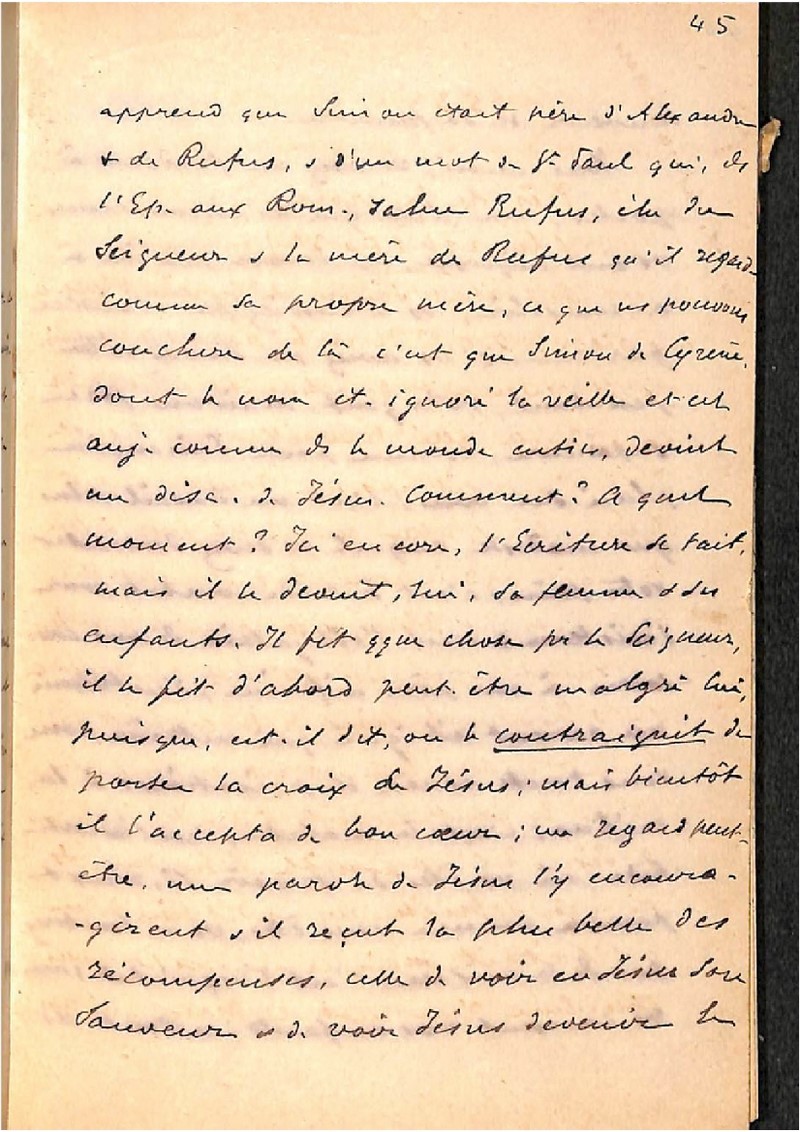 45
apprend que Simon était père d'Alexandre
& de Rufus, & d'un mot de St Paul qui, ds
l'Ep. aux Rom., salue Rufus, élu du
Seigneur & la mère de Rufus qu'il regarde
comme sa propre mère, ce que ns pouvons
conclure de là c'est que Simon de Cyrène,
dont le nom ét. ignoré la veille et est
auj. connu ds le monde entier, devint
un disc. de Jésus. Comment? A quel
moment? Ici encore, l'Ecriture se tait,
mais il le devint, lui, sa femme & ses
enfants. Il fit qque chose pr le Seigneur,
il le fit d'abord peut-être malgré lui,
puisque, est-il dit, on le contraignit de
porter la croix de Jésus; mais bientôt
il l'accepta de bon cœur; un regard peut-
être, une parole de Jésus l'y encoura-
-gèrent & il reçut la plus belle des
récompenses, celle de voir en Jésus son
Sauveur & de voir Jésus devenir le